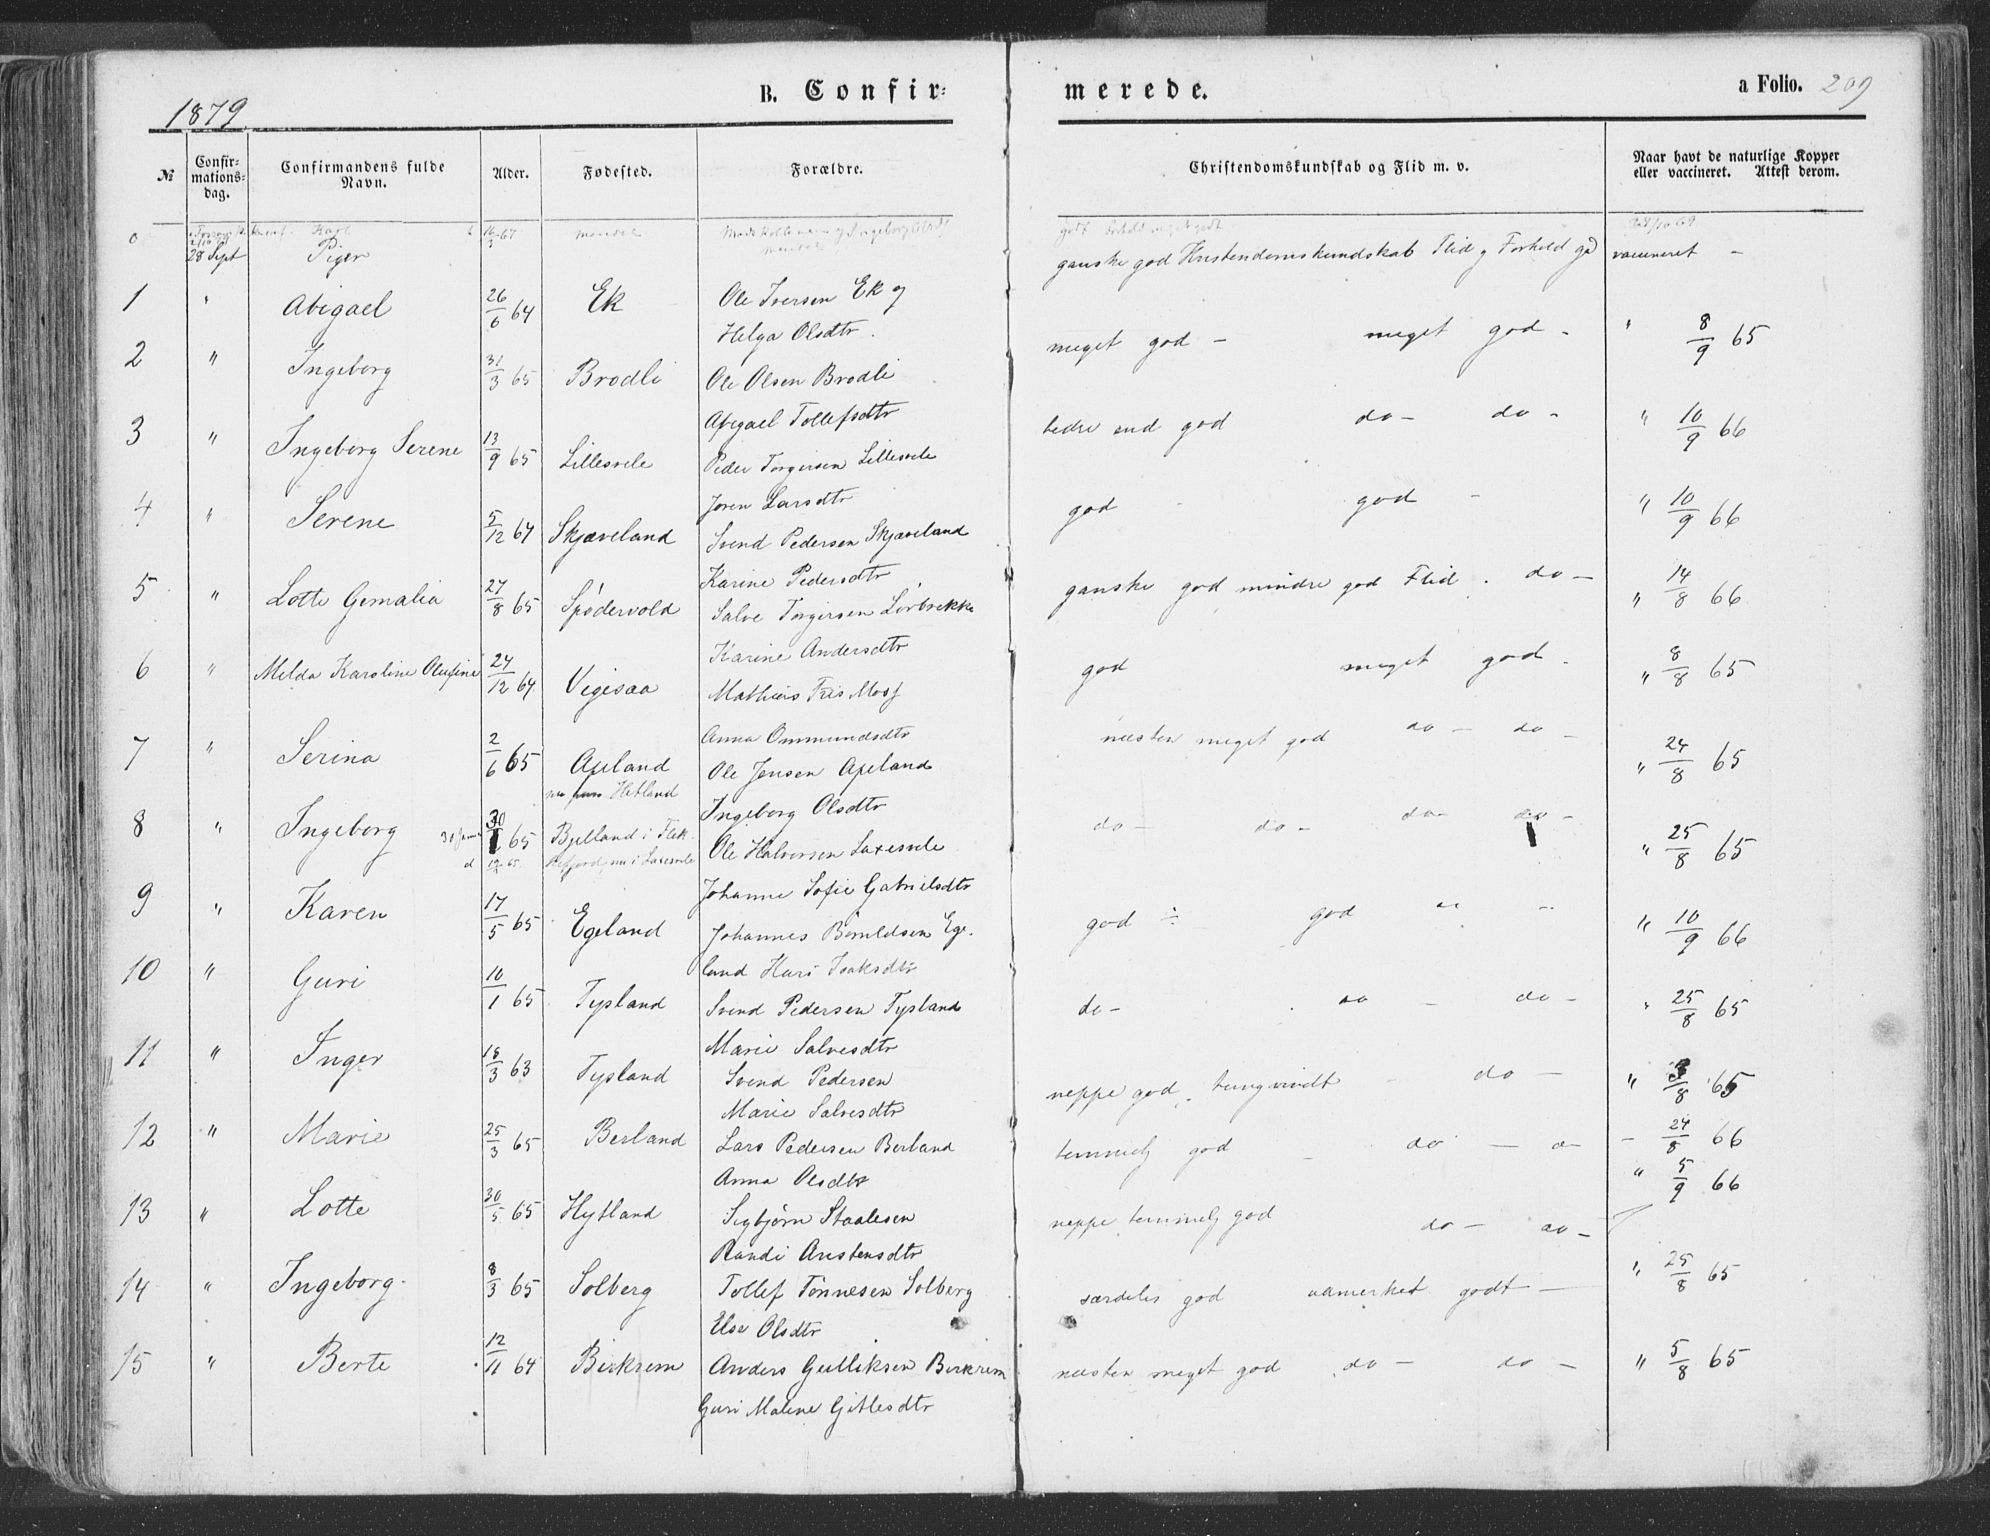 1879
B. Confir=
merede.
a Folio. 209
№
Confir-
mations-
dag.
Confirmandens fulde
Navn.
Alder.
Fødested.
Forældre.
Christendomskundskab og Flid m. v.
Naar havt de naturlige Kopper
eller vaccineret. Attest derom.
28 Sept Piger ganske god Kristendomskundskab Flid og Forhold gd vaccineret –
1 " Abigael 26/6 64 Ek Ole Iversen Ek og
Helga Olsdtr. meget god – meget god – " 8/9 65
2 " Ingeborg 31/3 65 Brodli Ole Olsen Brodli
Abigael Tollefsdtr bedre end god do – do – " 10/9 66
3 " Ingeborg Serene 13/9 65 Lillesvele Peder Torgersen Lillesvele
Joren Larsdtr god – god – " 10/9 66
4 " Serene 5/12 64 Skjæveland Svend Pedersen Skjæveland
Karine Pedersdtr ganske god, mindre god Flid. do – " 14/8 66
5 " Lotte Gemalia 27/8 65 Spødervold Salve Torgersen Lørbrekke
Karine Andersdtr god meget god – " 8/8 65
6 " Melda Karoline Olufine 24/12 64 Vigesaa Mathias Friis
Anna Ommundsdtr næsten meget god do – do – " 24/8 65
7 " Serina 2/6 65 Apeland Ole Jensen Apeland
nu Hetland
Ingeborg Olsdtr do – do – do – do – " 25/8 65
8 " Ingeborg 30 65 Bjelland i Flek-
kefjord, nu i Laxesvele Ole Halvorsen Laxesvele
Johanne Sofie Gabrielsdtr god ÷ god " – " 10/9 66
9 " Karen 17/5 65 Egeland Johannes Ege-
land
10 " Guri 10/1 65 Tysland Svend Pedersen Tysland do – do – do – " 25/8 65
Marie Salvesdtr
11 " Inger 18/3 63 Tysland Svend Pedersen neppe god, tungvindt – do – " 8 65
Marie Salvesdtr
12 " Marie 25/3 65 Berland Lars Pedersen Berland temmelig god – do – – 24/8 66
Anna Olsdtr " 5/9 66
13 " Lotte 30/5 65 Hytland Sigbjørn Staalesen neppe temmelig god do – do –
Randi Aristensdtr
14 " Ingeborg 8/3 65 Solberg Tollef Tønnesen Solberg særdeles god udmerket godt – " 25/8 65
Else Olsdtr
15 " Berte 12/11 64 Birkrem Anders Gulliksen Birkrem næsten meget god do – do – " 5/8 65
Guri Malene Gitlesdtr